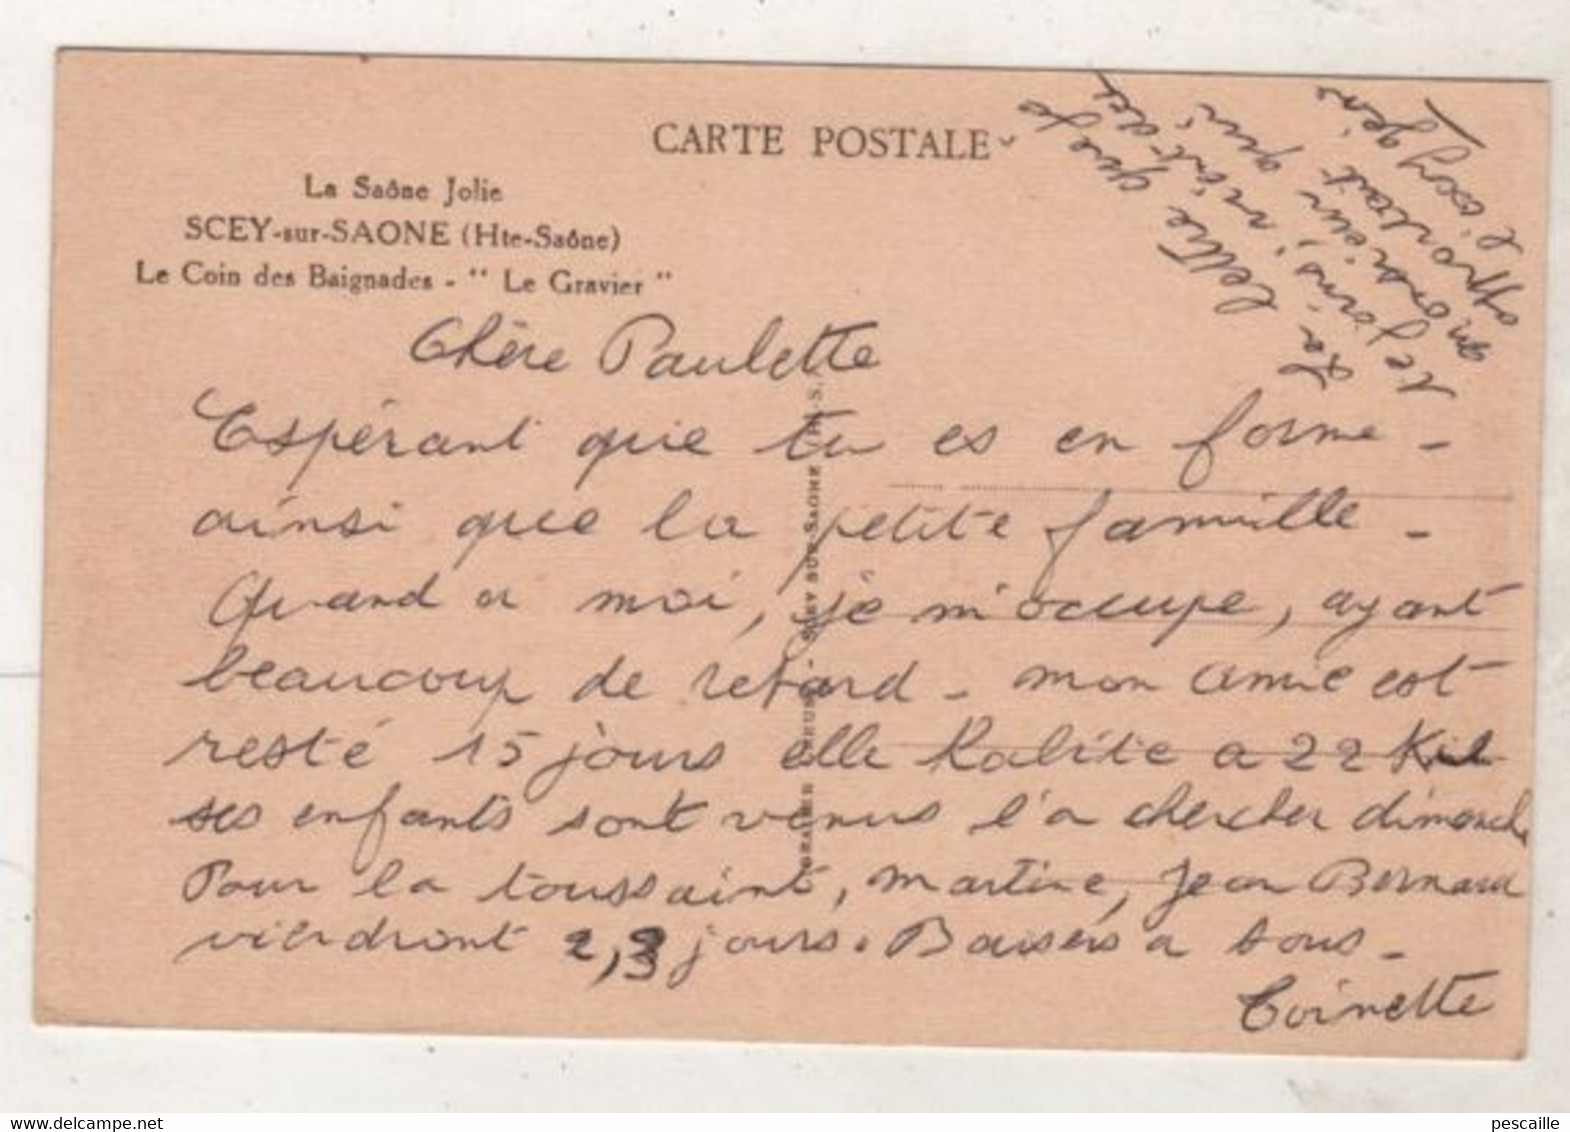 CARTE POSTALE
La Saône Jolie
SCEY-sur-SAONE (Hte-Saône)
Le Coin des Baignades - " Le Gravier "
La lettre que je
te joins, vient des
qui
apportait
Chère Paulette
Espérant que tu es en forme -
ainsi que la petite famille -
Quand a moi, je m'occupe, ayant
beaucoup de retard - mon amie est
resté 15 jours elle habite a 22 Kil
ses enfants sont venus l'a chercher dimanche
Pour la toussaint, Martine, Jean Bernard
viendront 2,3 jours. Baisers a tous -
Toinette
SCEY-SUR-SAONE (H.-S.)
pescaille